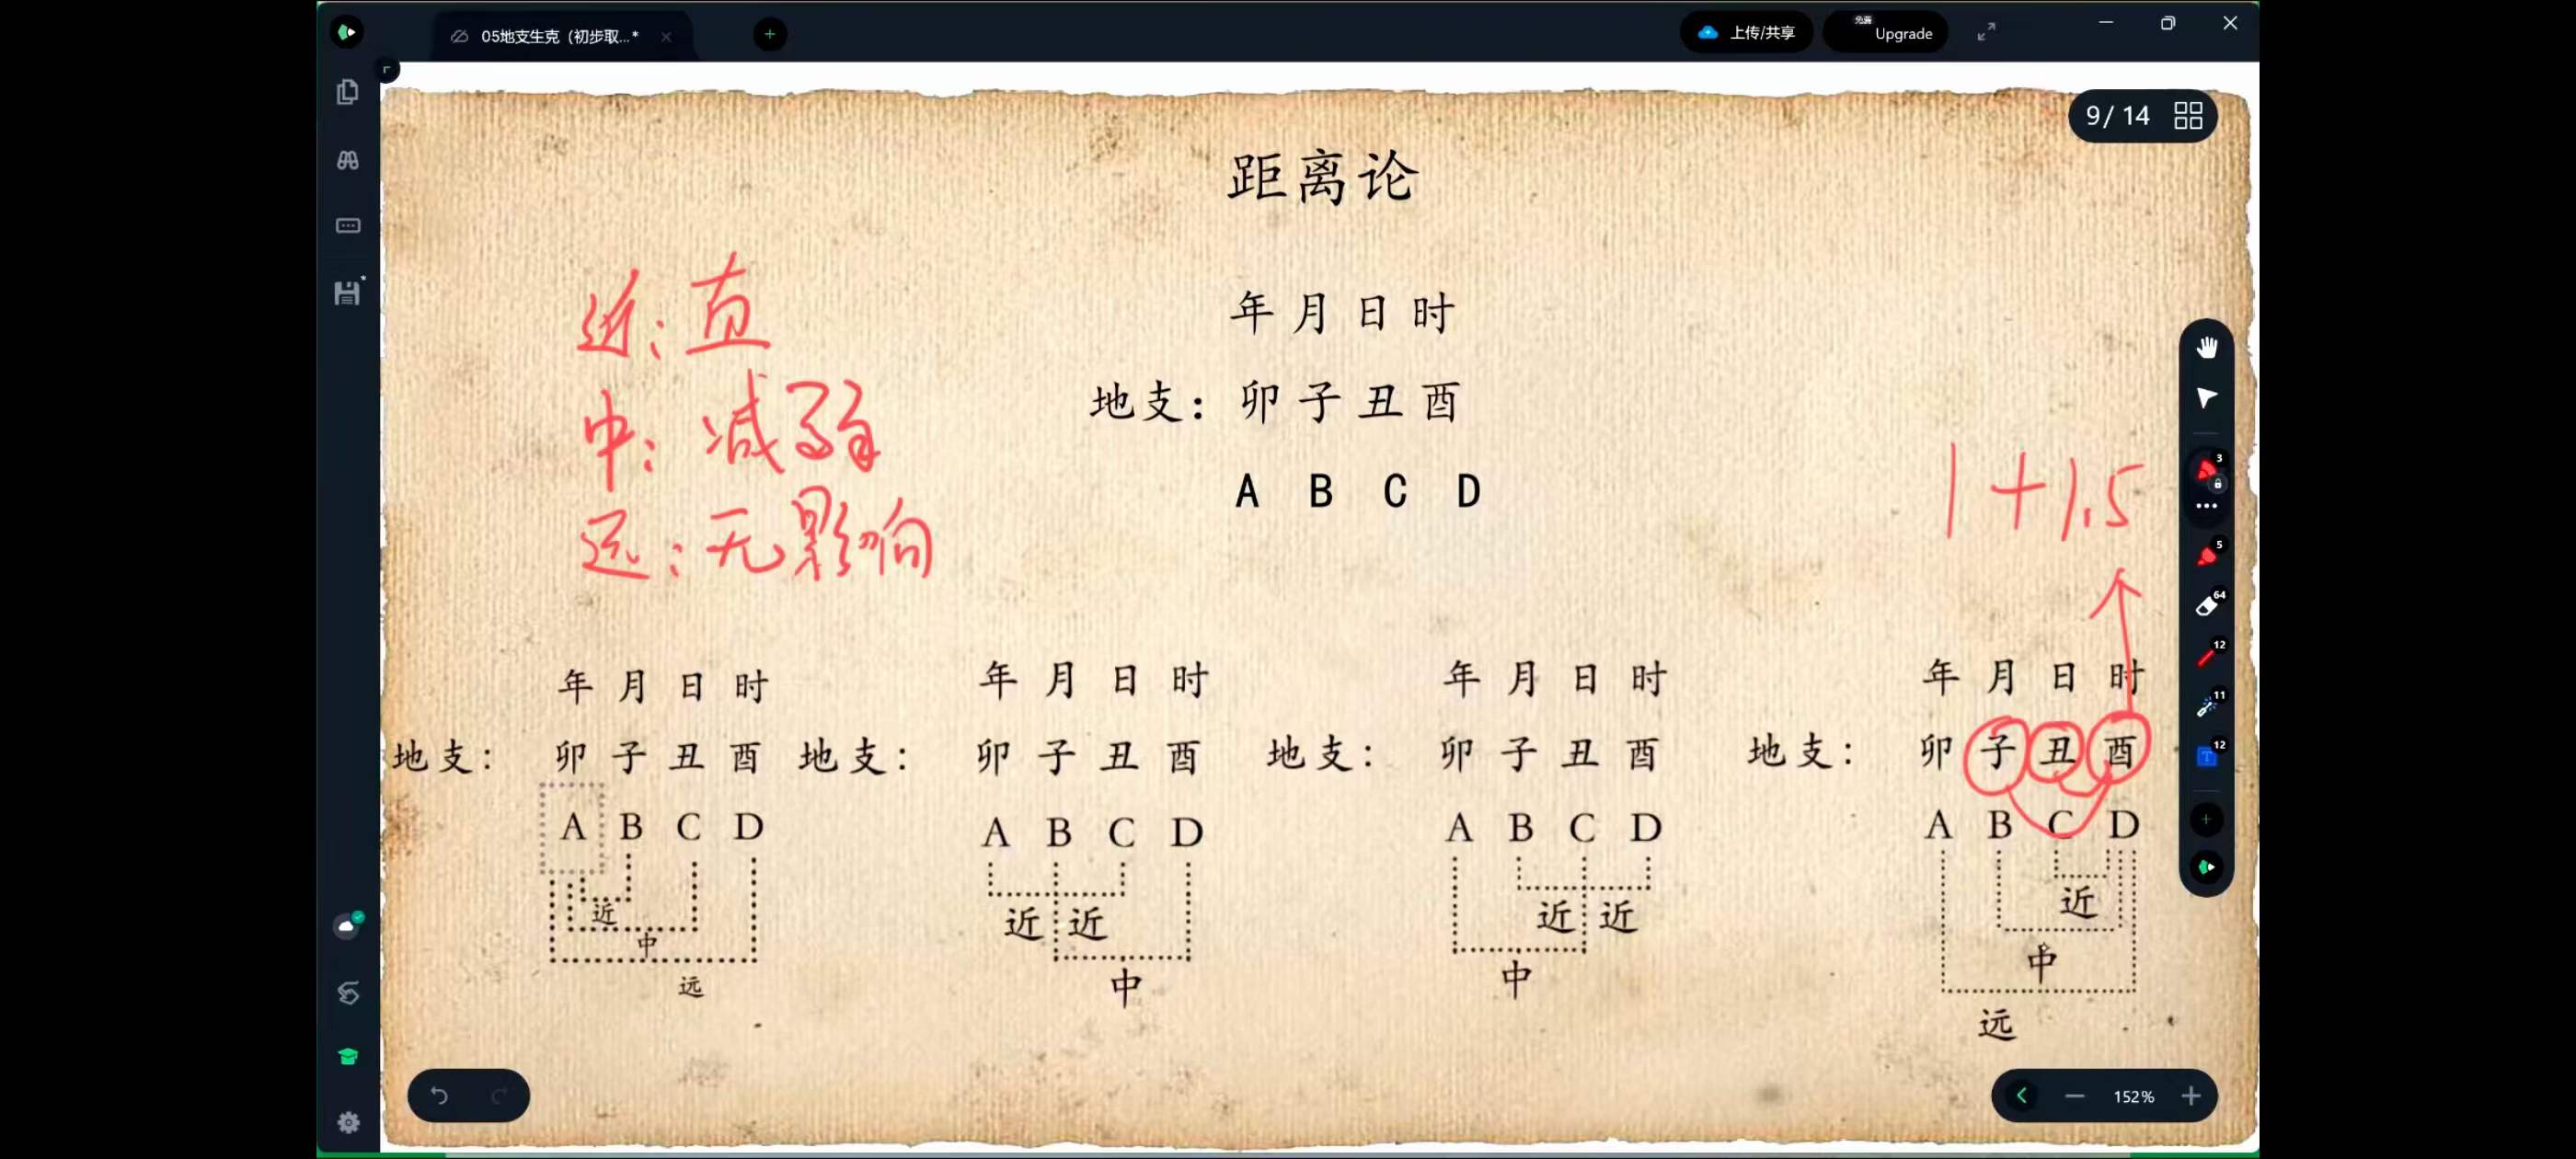 05地支生克（初步取...*
上传/共享
免费
Upgrade
9/ 14
距离论
年 月 日 时
地支：卯 子 丑 酉
A B C D
近：直
中：减弱
远：无影响
1+1.5
年 月 日 时
地支： 卯 子 丑 酉
A B C D
近
中
远
年 月 日 时
地支： 卯 子 丑 酉
A B C D
近 近
中
年 月 日 时
地支： 卯 子 丑 酉
A B C D
近 近
中
年 月 日 时
地支： 卯 子 丑 酉
A B C D
近
中
远
3
5
64
12
11
12
152%